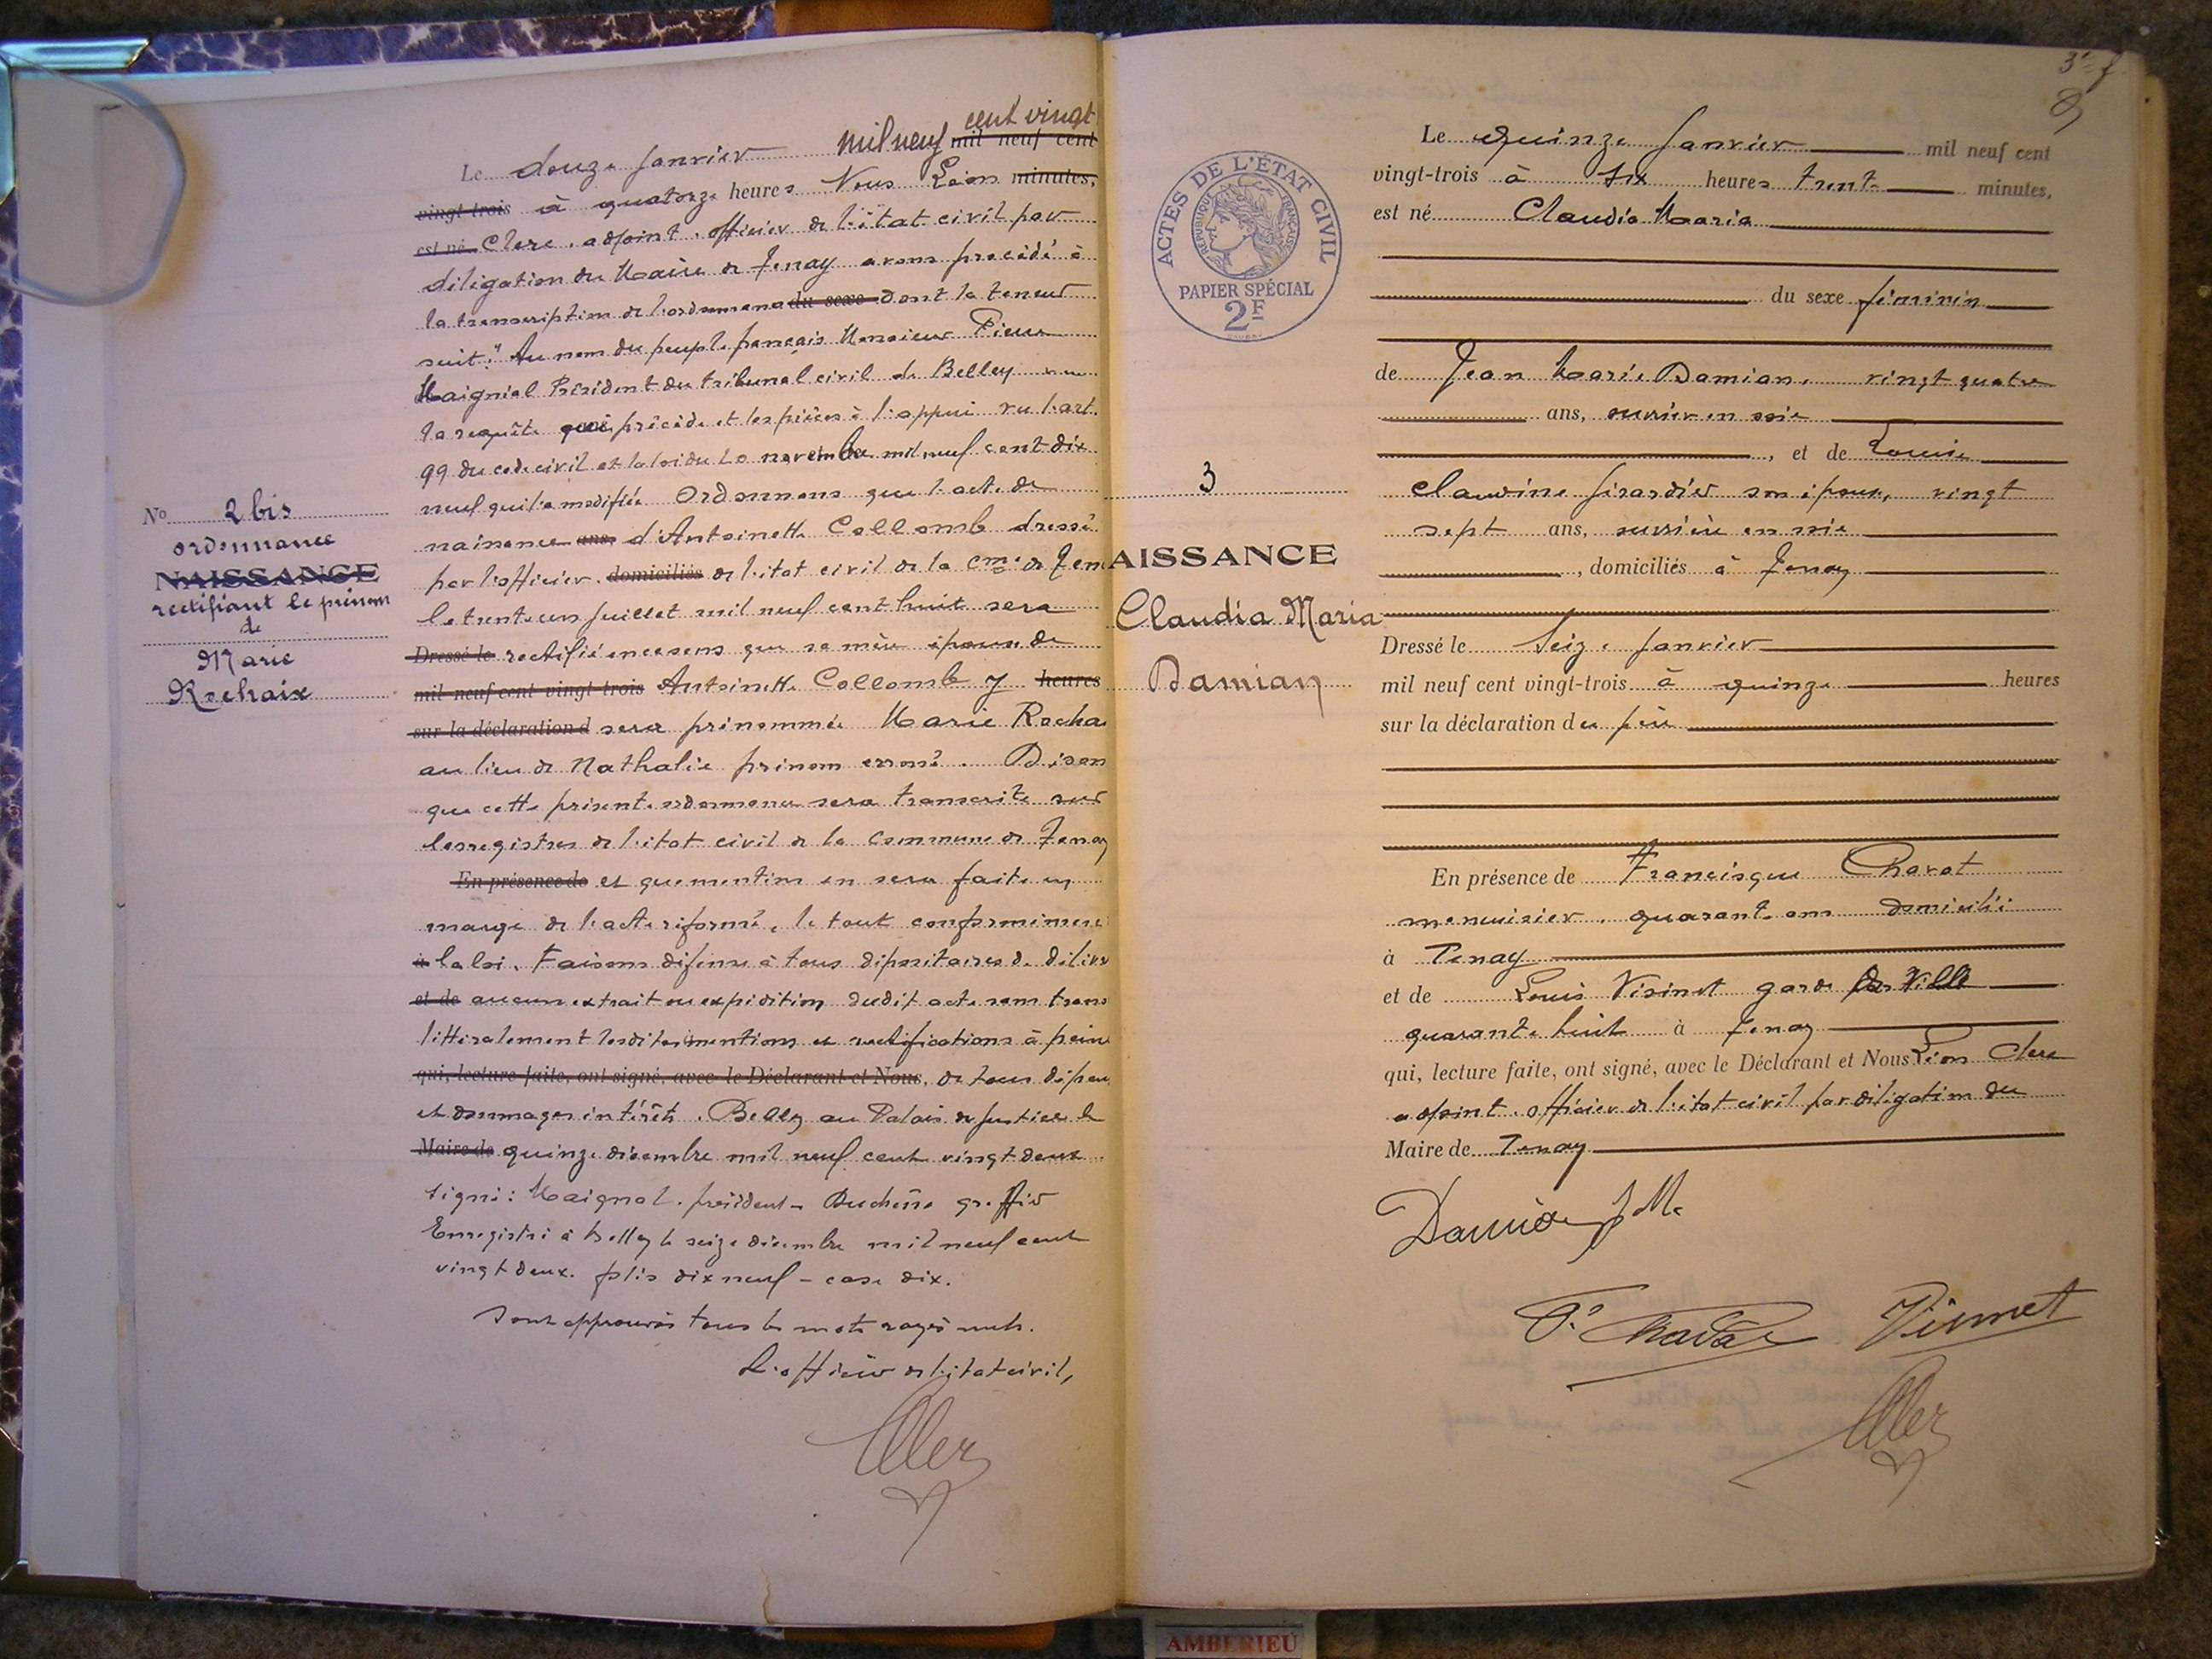 cent vingt
Le douze Janvier mil neuf mil neuf cent
vingt-trois à quatorze heures Nous Léon minutes,
est né Clerc, adjoint, officier de l'état civil par
délégation du Maire de Tenay avons procédé à
la transcription de l'ordonnance du sexe dont la teneur
suit: "Au nom du peuple français Monsieur Pierre
Maignial Président du tribunal civil de Belley vu
la requête qui précède et les pièces à l'appui vu l'art.
99 du code civil et la loi du 20 novembre mil neuf cent dix
neuf qui l'a modifiée Ordonnons que l'acte de
naissance ans, d'Antoinette Collomb dressé
par l'officier domiciliés de l'état civil de la Cne de Ten
le trente un Juillet mil neuf cent huit sera
Dressé le rectifié en ce sens que sa mère épouse de
mil neuf cent vingt-trois Antoinette Collomb y heures
sur la déclaration d sera prénommée Marie Rocha
au lieu de Nathalie prénom erroné. Dison
que cette présente ordonnance sera transcrite sur
les registres de l'état civil de la Commune de Tenay
En présence de et que mention en sera faite en
marge de l'acte réformé, le tout conformémen
à la loi. Faisons défense à tous dépositaires de déliv
et de aucun extrait ou expédition dudit acte sans trans
littéralement lesdites mentions et rectifications à peine
qui, lecture faite, ont signé, avec le Déclarant et Nous, de tous dépen
et dommages intérêts. Belley au Palais de Justice le
Maire de quinze décembre mil neuf cent vingt deux.
Signé: Maignal, président - Duchêne greffier
Enregistré à Belley le seize décembre mil neuf cent
vingt deux. folio dix neuf - case dix.
Sont approuvés tous les mots rayés nuls.
L'officier de l'état civil,
Clerc
No 2 bis
ordonnance
NAISSANCE
rectifiant le prénom
de
Marie
Rochaix
ACTES DE L'ÉTAT CIVIL
RÉPUBLIQUE FRANÇAISE
PAPIER SPÉCIAL
2F
3
AISSANCE
Claudia Maria
Damian
Le quinze Janvier mil neuf cent
vingt-trois à six heures trente minutes,
est né Claudia Maria
du sexe féminin
de Jean Marie Damian, vingt quatre
ans, ouvrier en soie
, et de Louise
Claudine Girardier son épouse, vingt
sept ans, ouvrière en soie
, domiciliés à Tenay
Dressé le Seize Janvier
mil neuf cent vingt-trois à quinze heures
sur la déclaration du père
En présence de Francisque Chavat
menuisier, quarante ans domicilié
à Tenay
et de Louis Visinet garde de Ville
quarante huit à Tenay
qui, lecture faite, ont signé, avec le Déclarant et Nous Léon Clerc
adjoint, officier de l'état civil par délégation du
Maire de Tenay
Damian J M.
F. Chavat Visinet
Clerc
AMBERIEU